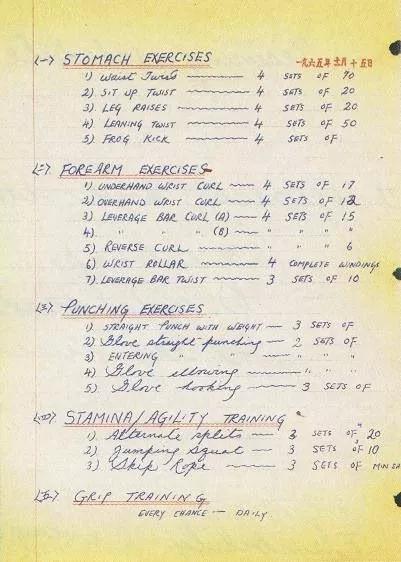 (一) STOMACH EXERCISES 一九六五年十二月十五日
1) Waist Twist 4 SETS OF 70
2) SIT UP TWIST 4 SETS OF 20
3) LEG RAISES 4 SETS OF 20
4) LEANING TWIST 4 SETS OF 50
5) FROG KICK 4 SETS OF
(二) FOREARM EXERCISES
1) UNDERHAND WRIST CURL 4 SETS OF 17
2) OVERHAND WRIST CURL 4 SETS OF 12
3) LEVERAGE BAR CURL (A) 4 SETS OF 15
4) " " " (B) " " " "
5) REVERSE CURL " " " 6
6) WRIST ROLLAR 4 COMPLETE WINDINGS
7) LEVERAGE BAR TWIST 3 SETS OF 10
(三) PUNCHING EXERCISES
1) STRAIGHT PUNCH WITH WEIGHT 3 SETS OF
2) Glove straight punching 2 SETS OF
3) ENTERING " " " " "
4) Glove elbowing " " "
5) Glove hooking 3 SETS OF
(四) STAMINA/AGILITY TRAINING
1) Alternate splits 3 SETS OF 20
2) Jumping Squat 3 SETS OF 10
3) Skip Rope 3 SETS OF MIN
(五) GRIP TRAINING
EVERY CHANCE — DAILY.